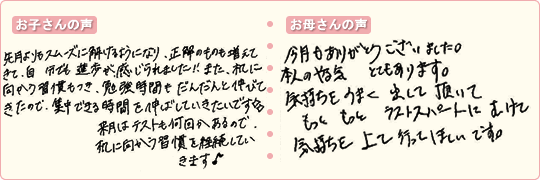 お子さんの声
先月よりもスムーズに解けるようになり、正解のものも増えて
きて、自分でも進歩が感じられました!!また、机に
向かう習慣もつき、勉強時間もだんだんと伸びて
きたので、集中できる時間を伸ばしていきたいです
来月はテストも何回かあるので、
机に向かう習慣を継続してい
きます♪
お母さんの声
今月もありがとうございました。
本人のやる気 とてもあります。
気持ちをうまく出して頂いて
もっともっと ラストスパートにむけて
気持ちを上て行ってほしいです。